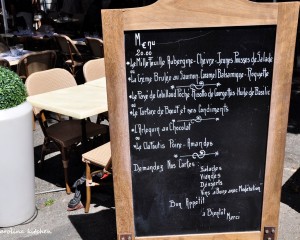 Menu
20.00
• Le Mille Feuille Aubergine-Chèvre, Jeunes Pousses de Salade
• La Crème Brulée au Saumon, Caramel Balsamique, Roquette
• Le Pavé de Cabillaud Poché, Risotto de Courgettes Huile de Basilic
• Le Tartare de Bœuf et ses Condiments
• L'Arlequin au Chocolat
• Le Clafoutis Poire-Amandes
Demandez Nos Cartes:
Salades
Viandes
Desserts
Vins
Bon Appétit
à Bientôt
Merci